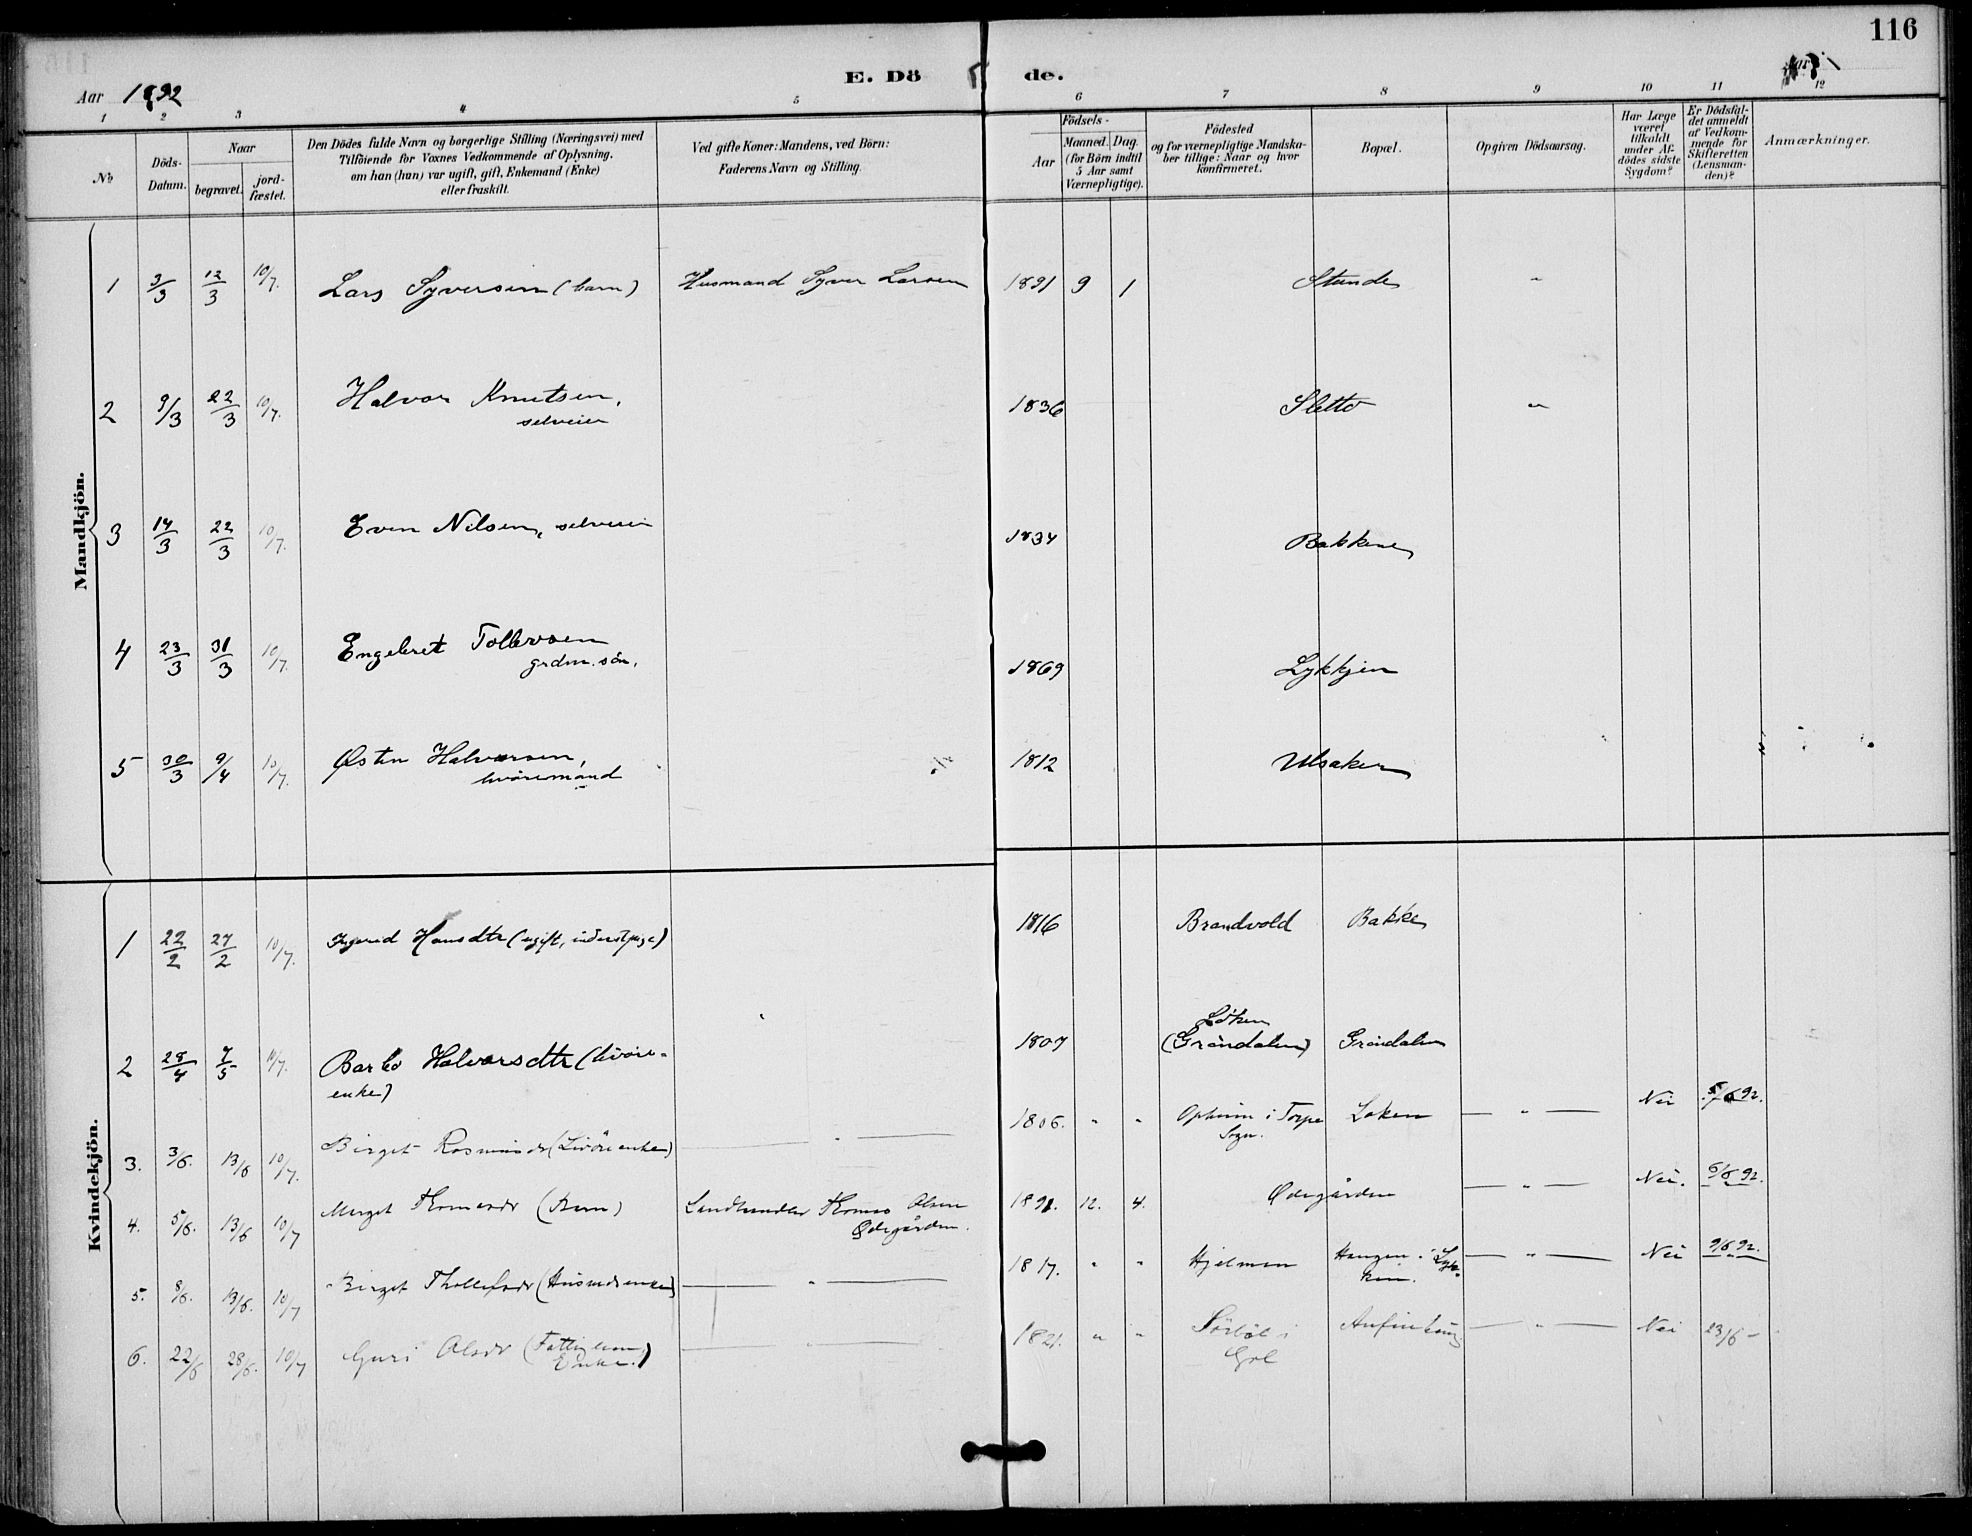 116
E. Dö de.
Aar 1892
1 2 3 4 5 6 7 8 9 10 11 12
No
Döds-Datum.
Naar
begravet.
jordfæstet.
Den Dödes fulde Navn og borgerlige Stilling (Næringsvei) med
Tilföiende for Voxnes Vedkommende af Oplysning.
om han (hun) var ugift, gift, Enkemand (Enke)
eller fraskilt.
Ved gifte Koner: Mandens, ved Börn:
Faderens Navn og Stilling.
Födsels-
Aar
Maaned. Dag.
(for Börn indtil
5 Aar samt
Værnepligtige).
Födested
og for værnepligtige Mandska-
ber tillige: Naar og hvor
konfirmeret.
Bopæl.
Opgiven Dödsaarsag.
Har Læge
været
tilkaldt
under Af-
dödes sidste
Sygdom?
Er Dödsfal-
det anmeldt
af Vedkom-
mende for
Skifteretten
(Lensman-
den)?
Anmærkninger.
Mandkjön.
1 3/3 12/3 10/7. Lars Syversen (barn) Husmand Syver Larsen 1891 9 1 Stunde "
2 9/3 22/3 10/7. Halvor Knutsen, 1836 Sletto "
selveier
3 14/3 22/3 10/7. Even Nilsen, selveier 1834 Bakkene
4 23/3 31/3 10/7. Engebret Tollevsen 1869 Lykkjen
grdm. sön.
5 30/3 9/4 10/7. Østen Halvorsen, 1812 Ulsaker
livöremand
Kvindekjön.
1 22/2 27/2 10/7. Ingerid Hansdtr (ugift, inderstpige) 1816 Brandvold Bakke
2 28/4 7/5 10/7. Barbo Halvorsdtr (livöre- 1807 Löken
(Gröndalen) Gröndalen
enke)
3. 3/6. 13/6 10/7. Birget Rasmusdr (Livöreenke) " 1806. " " Ophim i Torpe Løken " Nei 5/6 92.
Sogn.
4. 5/6. 13/6 10/7 Merget Thomasdr (Barn) Landhandler Thomas Olsen 1891. 12. 4. Ødegården " Nei. 6/6 92.
Ødegården.
5. 8/6. 13/6. 10/7 Birget Thollefsdr (Husmdsenke) " 1817. " " Hjelmen Haugen i Lyk- " Nei 9/6 92.
kin.
6. 22/6 28/6. 10/7 Guri Olsdr (Fattiglem, 1821. " " Sörböl i " Nei 23/6 -
Enke.) Gol